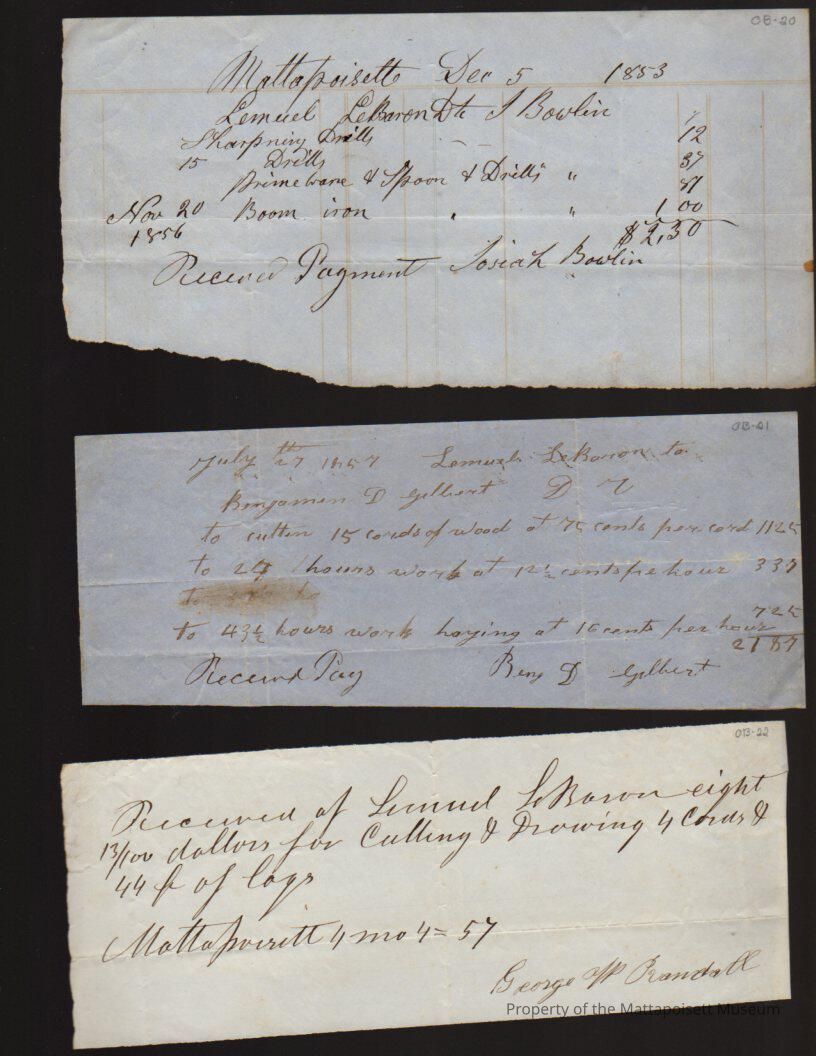 OB-20
Mattapoisette Dec 5 1853
Lemuel LeBaron Dt to J Bowlin
Sharpning Drills 12
15 Drills 37
& Spoon & Drills " 81
Nov 20 Boom iron " " 1 00
1856 $2,30
Received Payment Josiah Bowlin
OB-21
July th 27 1857 Lemuel LeBaron to
Benjamen D Gilbert D r
to cutten 15 cords of wood at 75 cents per cord 1125
to 27 hours work at 12½ cents pe hour 337
725
to 43½ hours work haying at 16 cents per hour
2187
Received Pay Benj D Gilbert
OB-22
Received of Lemuel LeBaron eight
13/100 dollars for Cutting & Drawing 4 Cords &
44 ft of logs
Mattapoisett 4 mo 4= 57
George W Randall
Property of the Mattapoisett Museum